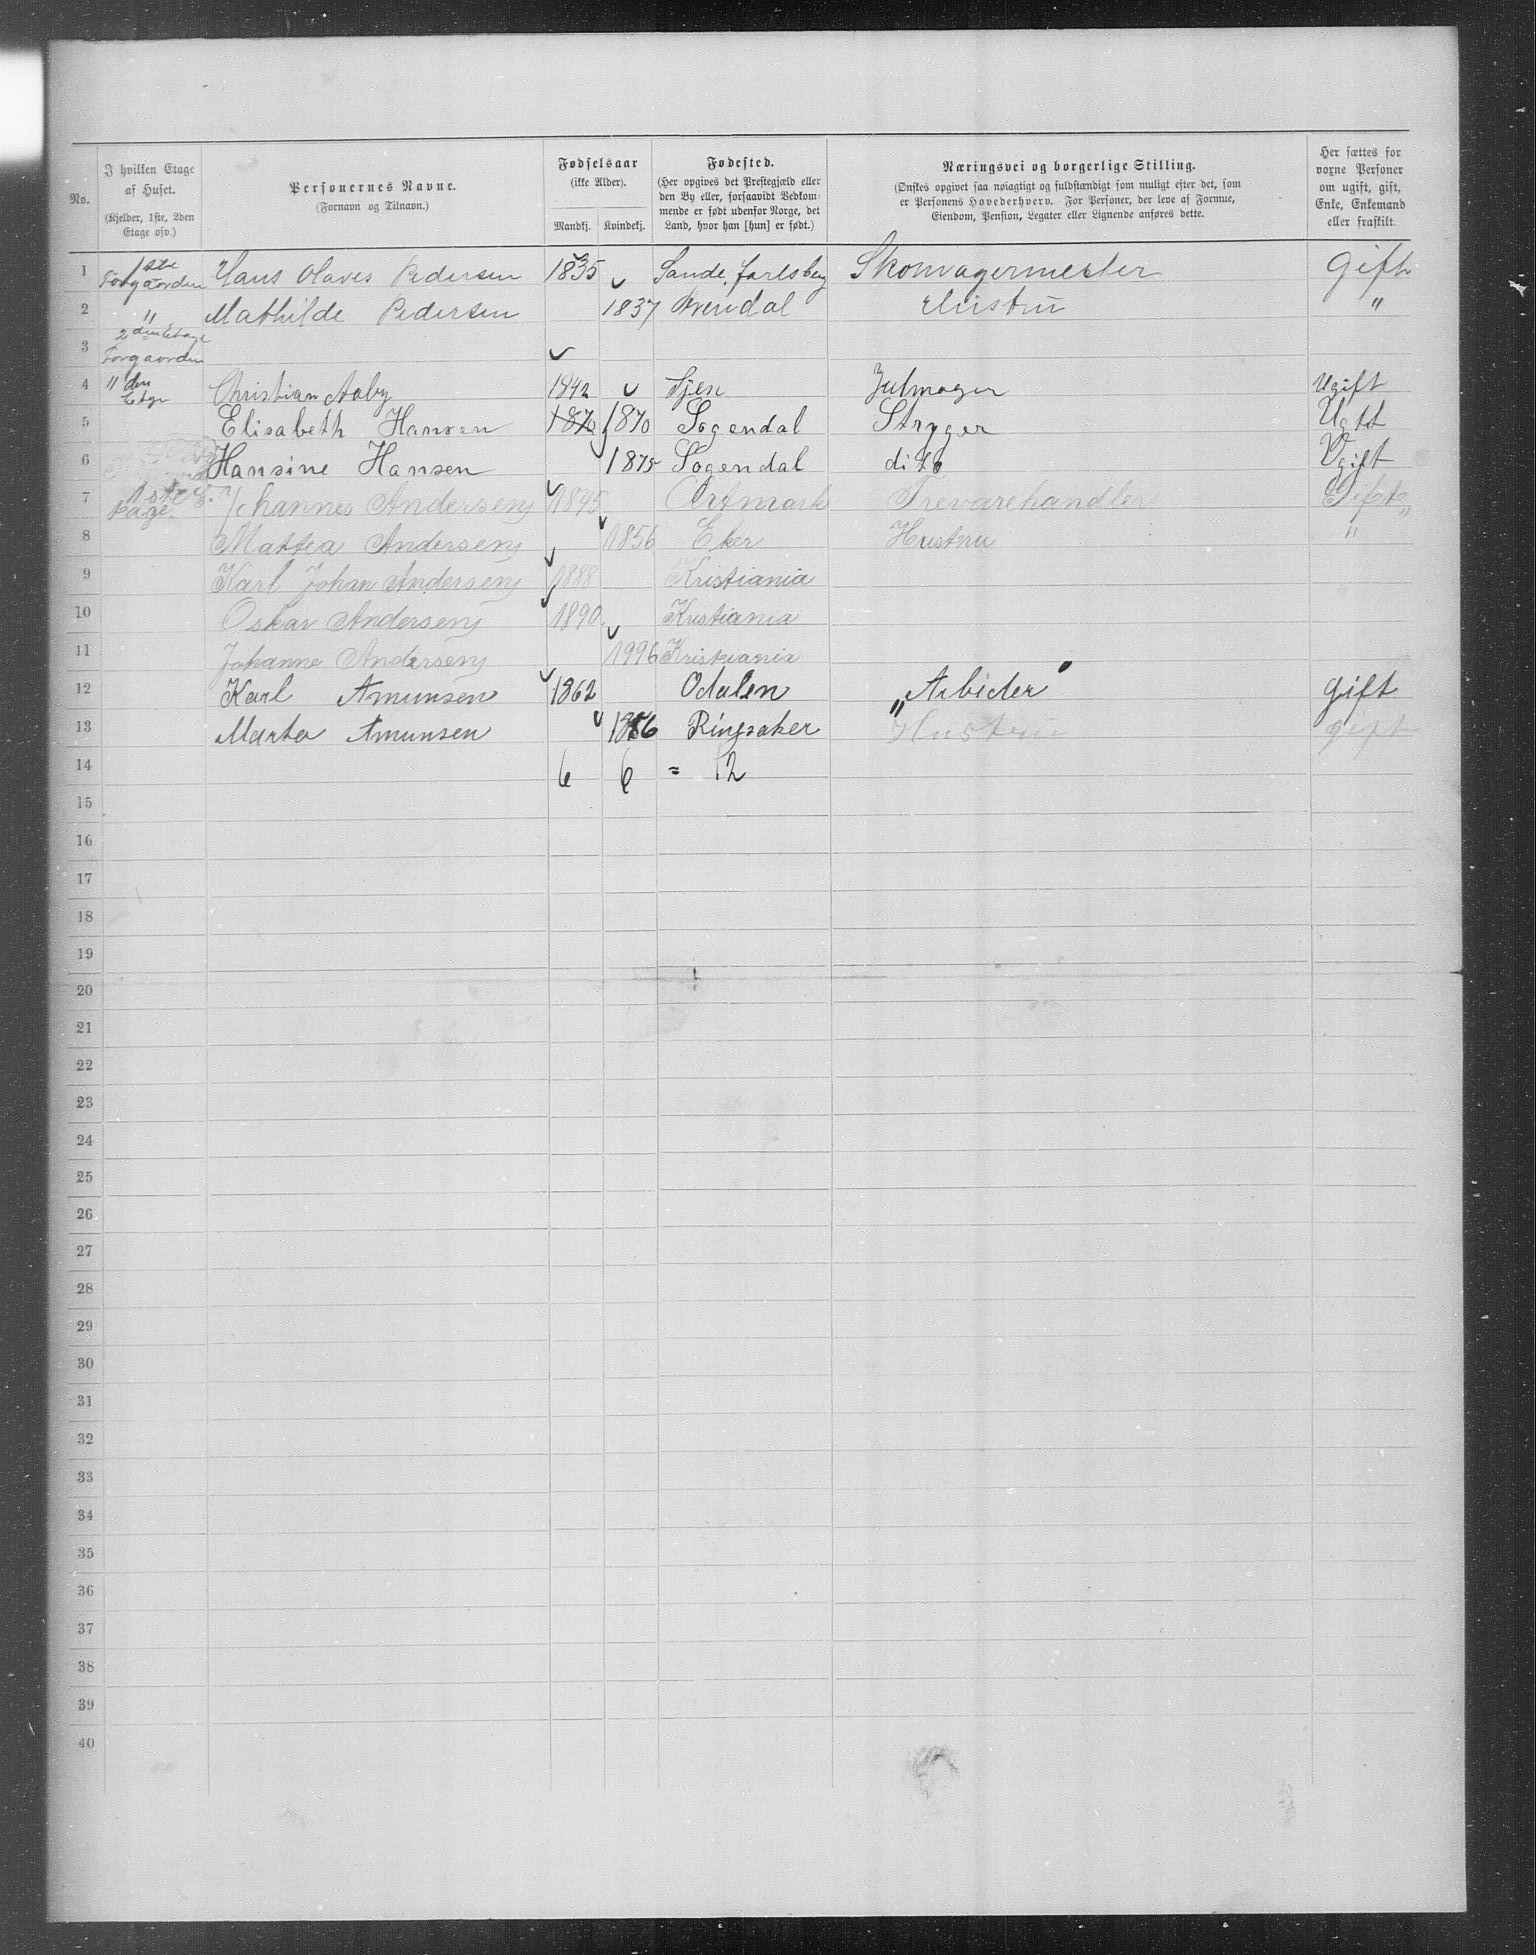 No.
I hvilken Etage af Huset.
(Kjelder, 1ste, 2den Etage osv.)
Personernes Navne.
(Fornavn og Tilnavn.)
Fødselsaar
(ikke Alder).
Mandkj. Kvindekj.
Fødested.
(Her opgives det Prestegjæld eller den By eller, forsaavidt Vedkommende er født udenfor Norge, det Land, hvor han [hun] er født.)
Næringsvei og borgerlige Stilling.
(Ønskes opgivet saa nøiagtigt og fuldstændigt som muligt efter det, som er Personens Hovederhverv. For Personer, der leve af Formue, Eiendom, Pension, Legater eller Lignende anføres dette.)
Her sættes for voxne Personer om ugift, gift, Enke, Enkemand eller fraskilt.
1 1ste Forgaarden Hans Olaves Pedersen 1835 Sande. Jarlsberg gift
2 " Mathilde Pedersen 1837 Hustru "
3 2den Etage Forgaarden
4 " den Etage Christian Aaby 1842 Ugift
5 Elisabeth Hansen 1870 1870 Sogendal Stryger Ugft
6 Hansine Hansen 1875 Sogendal dito Ugift
7 1ste E.tage. Johannes Andersen 1845 Trevarehandler Gift
8 Mattea Andersen 1856 Eker Hustru "
9 Karl Johan Andersen 1888 Kristiania
10 Oskar Andersen 1890 Kristiania
11 Johanne Andersen 1996 Kristiania
12 Karl Amunsen 1862 Odalen "Arbider" gift
13 Marta Amunsen 1856 Ringsaker Hustru gift
14 6 6 = 12
15
16
17
18
19
20
21
22
23
24
25
26
27
28
29
30
31
32
33
34
35
36
37
38
39
40